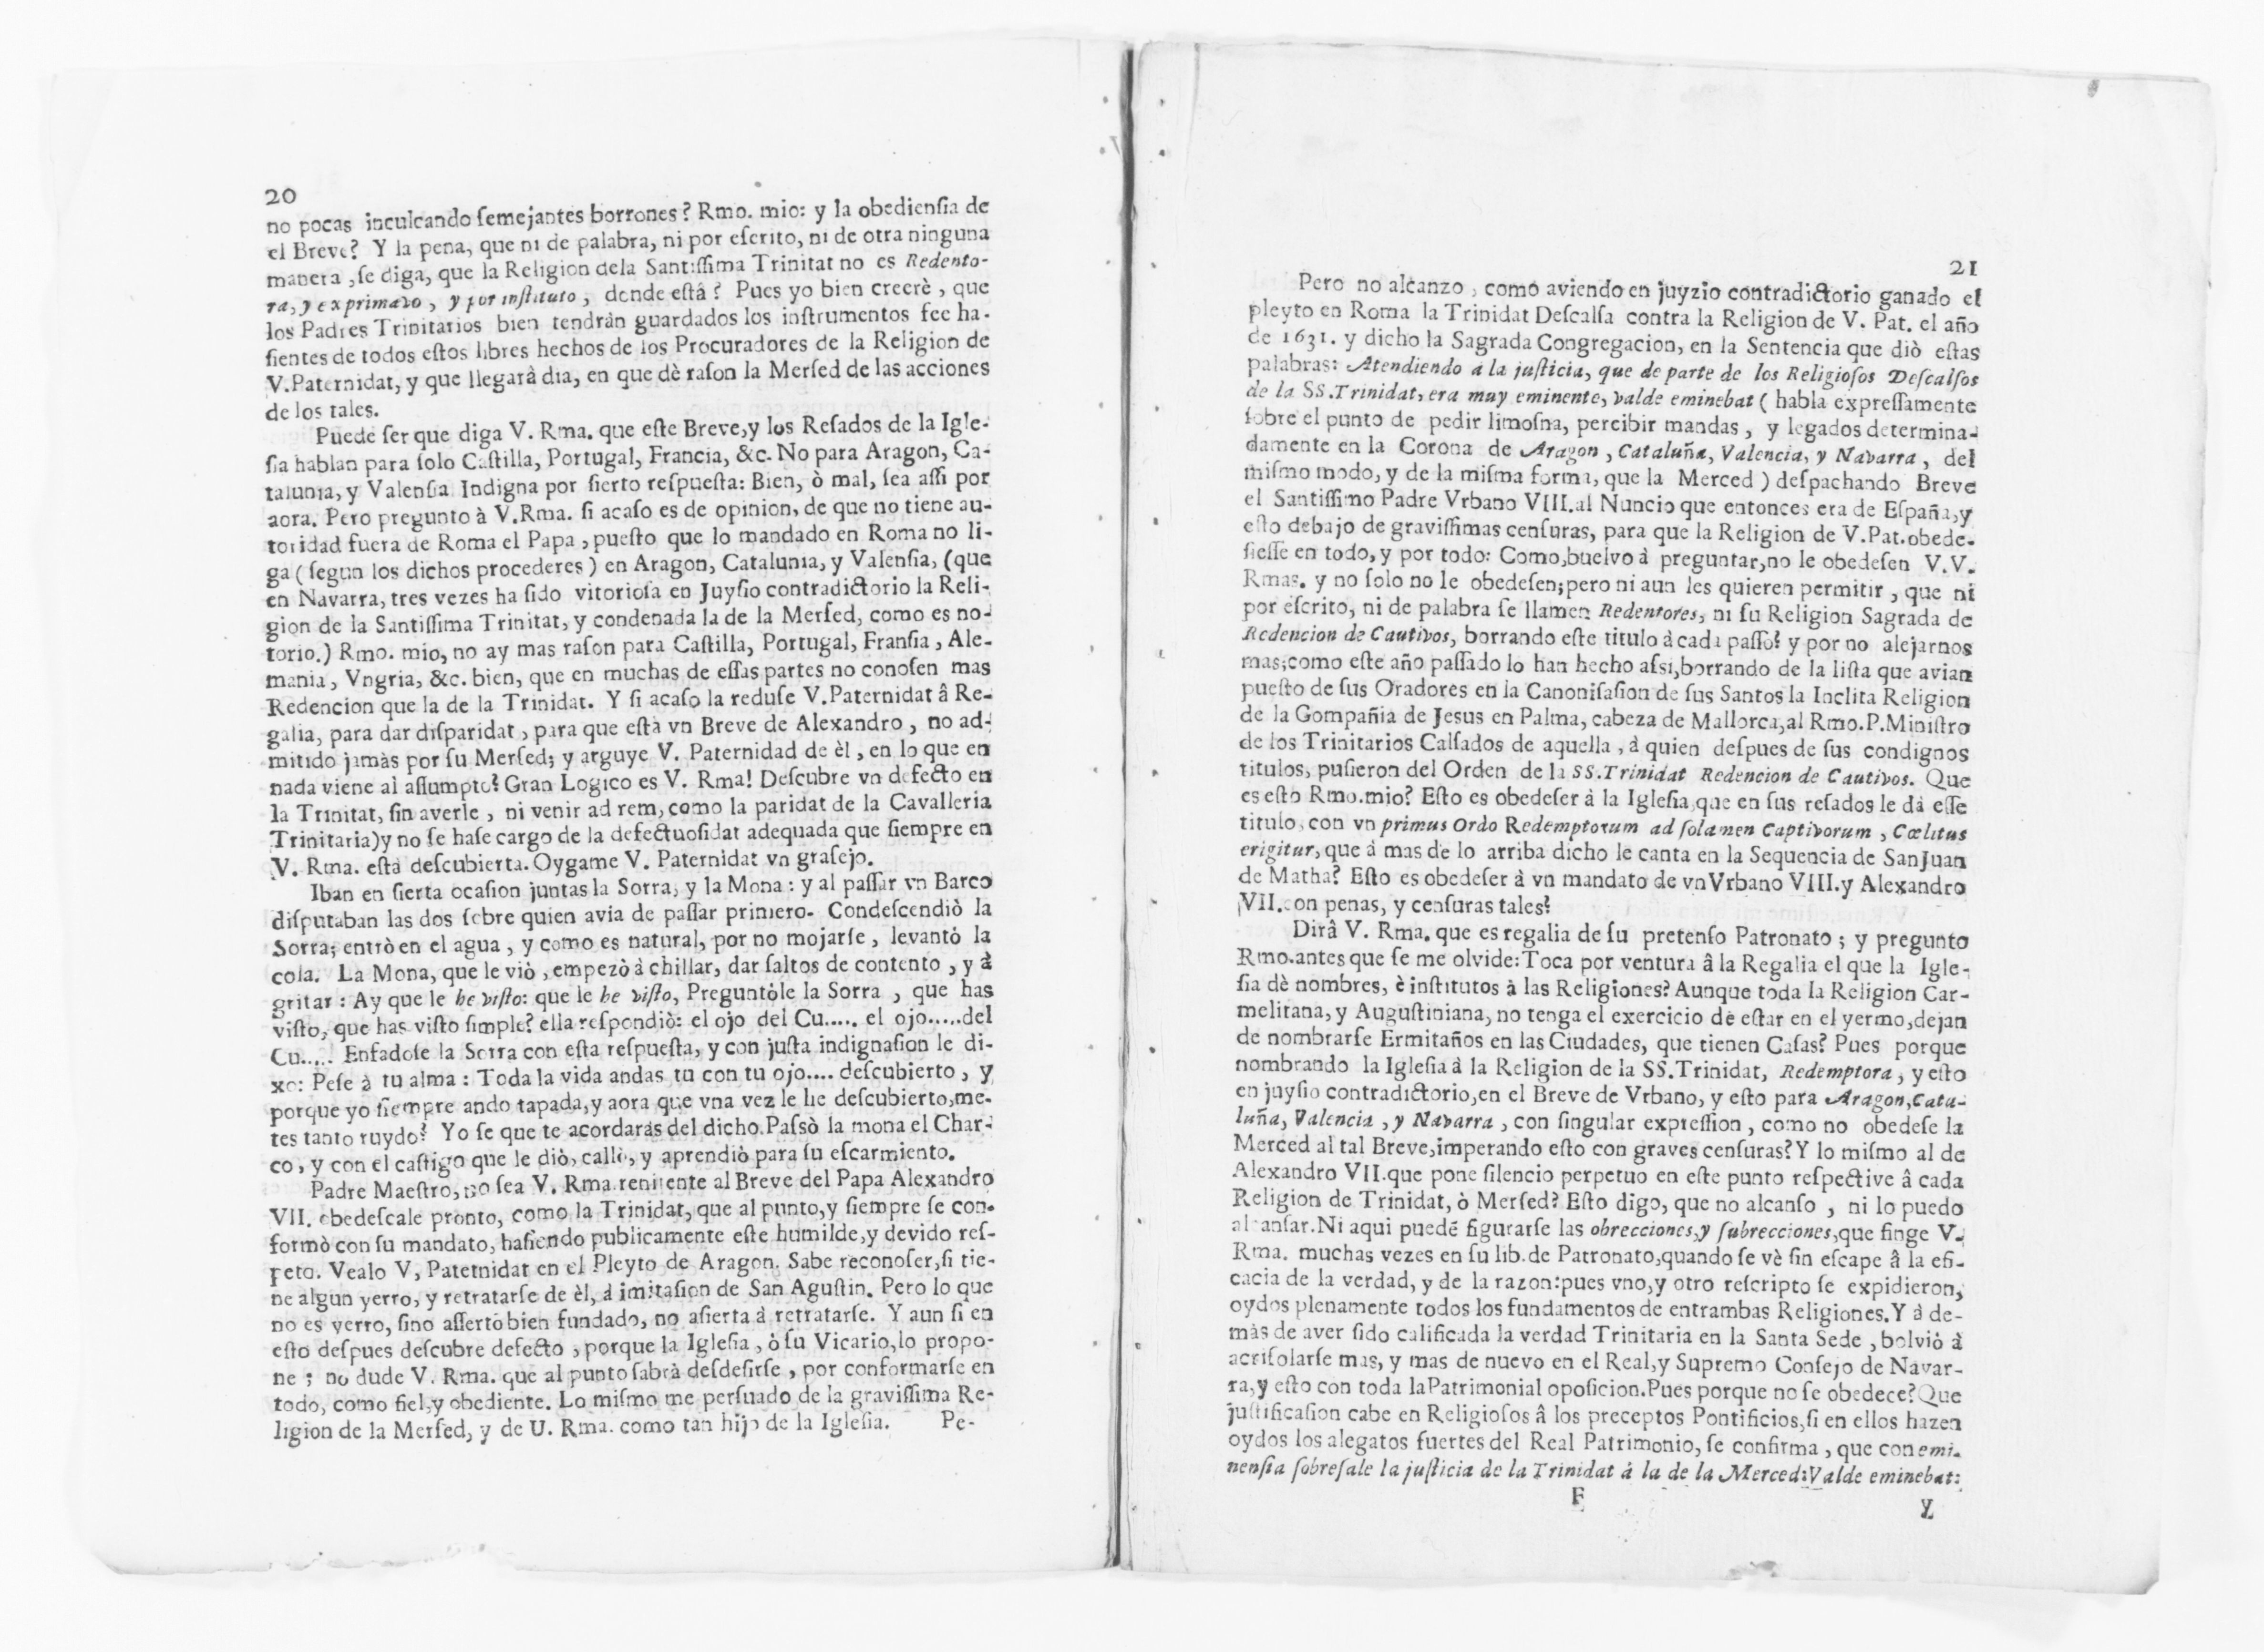 20
no pocas inculcando ſemejantes borrones? Rmo. mio: y la obedienſia de
el Breve? Y la pena, que ni de palabra, ni por eſcrito, ni de otra ninguna
manera, ſe diga, que la Religion dela Santiſſima Trinitat no es Redento-
ra, y ex primario, y por inſtituto, donde eſtâ? Pues yo bien creerè, que
los Padres Trinitarios bien tendràn guardados los inſtrumentos fee ha-
ſientes de todos eſtos libres hechos de los Procuradores de la Religion de
V.Paternidat, y que llegarà dia, en que dè raſon la Merſed de las acciones
de los tales.
Puede ſer que diga V. Rma. que eſte Breve, y los Reſados de la Igle-
ſia hablan para ſolo Caſtilla, Portugal, Francia, &c. No para Aragon, Ca-
talunia, y Valenſia Indigna por ſierto reſpueſta: Bien, ò mal, ſea aſſi por
aora. Pero pregunto à V.Rma. ſi acaſo es de opinion, de que no tiene au-
toridad fuera de Roma el Papa, pueſto que lo mandado en Roma no li-
ga (ſegun los dichos procederes) en Aragon, Catalunia, y Valenſia, (que
en Navarra, tres vezes ha ſido vitorioſa en Juyſio contradictorio la Reli-
gion de la Santiſſima Trinitat, y condenada la de la Merſed, como es no-
torio.) Rmo. mio, no ay mas raſon para Caſtilla, Portugal, Franſia, Ale-
mania, Vngria, &c. bien, que en muchas de eſſas partes no conoſen mas
Redencion que la de la Trinidat. Y ſi acaſo la reduſe V.Paternidat â Re-
galia, para dar diſparidat, para que eſtà vn Breve de Alexandro, no ad-
mitido jamàs por ſu Merſed; y arguye V. Paternidad de èl, en lo que en
nada viene al aſſumpto? Gran Logico es V. Rma! Deſcubre vn defecto en
la Trinitat, ſin averle, ni venir ad rem, como la paridat de la Cavalleria
Trinitaria)y no ſe haſe cargo de la defectuoſidat adequada que ſiempre en
V. Rma. eſtà deſcubierta. Oygame V. Paternidat vn graſejo.
Iban en ſierta ocaſion juntas la Sorra, y la Mona: y al paſſar vn Barco
diſputaban las dos ſobre quien avia de paſſar primero. Condeſcendiò la
Sorra; entrò en el agua, y como es natural, por no mojarſe, levantò la
cola. La Mona, que le viò, empezò à chillar, dar ſaltos de contento, y à
gritar: Ay que le he viſto: que le he viſto, Preguntòle la Sorra, que has
viſto, que has viſto ſimple? ella reſpondiò: el ojo del Cu.... el ojo.....del
Cu..... Enfadoſe la Sorra con eſta reſpueſta, y con juſta indignaſion le di-
xo: Peſe à tu alma: Toda la vida andas tu con tu ojo.... deſcubierto, y
porque yo ſiempre ando tapada, y aora que vna vez le he deſcubierto, me-
tes tanto ruydo? Yo ſe que te acordaràs del dicho. Paſsò la mona el Char-
co, y con el caſtigo que le diò, callò, y aprendiò para ſu eſcarmiento.
Padre Maeſtro, no ſea V. Rma. renitente al Breve del Papa Alexandro
VII. obedeſcale pronto, como la Trinidat, que al punto, y ſiempre ſe con-
formò con ſu mandato, haſiendo publicamente eſte humilde, y devido reſ-
peto. Vealo V, Paternidat en el Pleyto de Aragon. Sabe reconoſer, ſi tie-
ne algun yerro, y retratarſe de èl, à imitaſion de San Aguſtin. Pero lo que
no es yerro, ſino aſſertò bien fundado, no aſierta à retratarſe. Y aun ſi en
eſto deſpues deſcubre defecto, porque la Igleſia, ò ſu Vicario, lo propo-
ne; no dude V. Rma. que al punto ſabrà deſdeſirſe, por conformarſe en
todo, como fiel, y obediente. Lo miſmo me perſuado de la graviſſima Re-
ligion de la Merſed, y de U. Rma. como tan hijo de la Igleſia. Pe-
21
Pero no alcanzo, como aviendo en juyzio contradictorio ganado el
pleyto en Roma la Trinidat Deſcalſa contra la Religion de V. Pat. el año
de 1631. y dicho la Sagrada Congregacion, en la Sentencia que diò eſtas
palabras: Atendiendo à la juſticia, que de parte de los Religioſos Deſcalſos
de la SS.Trinidat, era muy eminente, valde eminebat (habla expreſſamente
ſobre el punto de pedir limoſna, percibir mandas, y legados determina-
damente en la Corona de Aragon, Cataluña, Valencia, y Navarra, del
miſmo modo, y de la miſma forma, que la Merced) deſpachando Breve
el Santiſſimo Padre Vrbano VIII.al Nuncio que entonces era de Eſpaña, y
eſto debajo de graviſſimas cenſuras, para que la Religion de V.Pat.obede-
ſieſſe en todo, y por todo: Como, buelvo à preguntar, no le obedeſen V.V.
Rmas. y no ſolo no le obedeſen; pero ni aun les quieren permitir, que ni
por eſcrito, ni de palabra ſe llamen Redentores, ni ſu Religion Sagrada de
Redencion de Cautivos, borrando eſte titulo à cada paſſo? y por no alejarnos
mas; como eſte año paſſado lo han hecho aſsi, borrando de la liſta que avian
pueſto de ſus Oradores en la Canoniſaſion de ſus Santos la Inclita Religion
de la Gompañia de Jesus en Palma, cabeza de Mallorca, al Rmo.P.Miniſtro
de los Trinitarios Calſados de aquella, à quien deſpues de ſus condignos
titulos, puſieron del Orden de la SS.Trinidat Redencion de Cautivos. Que
es eſto Rmo.mio? Eſto es obedeſer à la Igleſia, que en ſus reſados le dà eſſe
titulo, con vn primus Ordo Redemptorum ad ſolamen Captivorum, Cœlitus
erigitur, que à mas de lo arriba dicho le canta en la Sequencia de San Juan
de Matha? Eſto es obedeſer à vn mandato de vn Vrbano VIII.y Alexandro
VII.con penas, y cenſuras tales?
Dirâ V. Rma. que es regalia de ſu pretenſo Patronato; y pregunto
Rmo.antes que ſe me olvide: Toca por ventura â la Regalia el que la Igle-
ſia dè nombres, è inſtitutos à las Religiones? Aunque toda la Religion Car-
melitana, y Auguſtiniana, no tenga el exercicio de eſtar en el yermo, dejan
de nombrarſe Ermitaños en las Ciudades, que tienen Caſas? Pues porque
nombrando la Igleſia à la Religion de la SS.Trinidat, Redemptora, y eſto
en juyſio contradictorio, en el Breve de Vrbano, y eſto para Aragon, Cata-
luña, Valencia, y Navarra, con ſingular expreſſion, como no obedeſe la
Merced al tal Breve, imperando eſto con graves cenſuras? Y lo miſmo al de
Alexandro VII.que pone ſilencio perpetuo en eſte punto reſpective â cada
Religion de Trinidat, ò Merſed? Eſto digo, que no alcanſo, ni lo puedo
alcanſar. Ni aqui puedē figurarſe las obrecciones, y ſubrecciones, que finge V.
Rma. muchas vezes en ſu lib. de Patronato, quando ſe vè ſin eſcape â la efi-
cacia de la verdad, y de la razon: pues vno, y otro reſcripto ſe expidieron,
oydos plenamente todos los fundamentos de entrambas Religiones. Y à de-
màs de aver ſido calificada la verdad Trinitaria en la Santa Sede, bolviò à
acriſolarſe mas, y mas de nuevo en el Real, y Supremo Conſejo de Navar-
ra, y eſto con toda la Patrimonial opoſicion. Pues porque no ſe obedece? Que
juſtificaſion cabe en Religioſos â los preceptos Pontificios, ſi en ellos hazen
oydos los alegatos fuertes del Real Patrimonio, ſe confirma, que con emi-
nenſia ſobreſale la juſticia de la Trinidat à la de la Merced: Valde eminebat:
F
Y